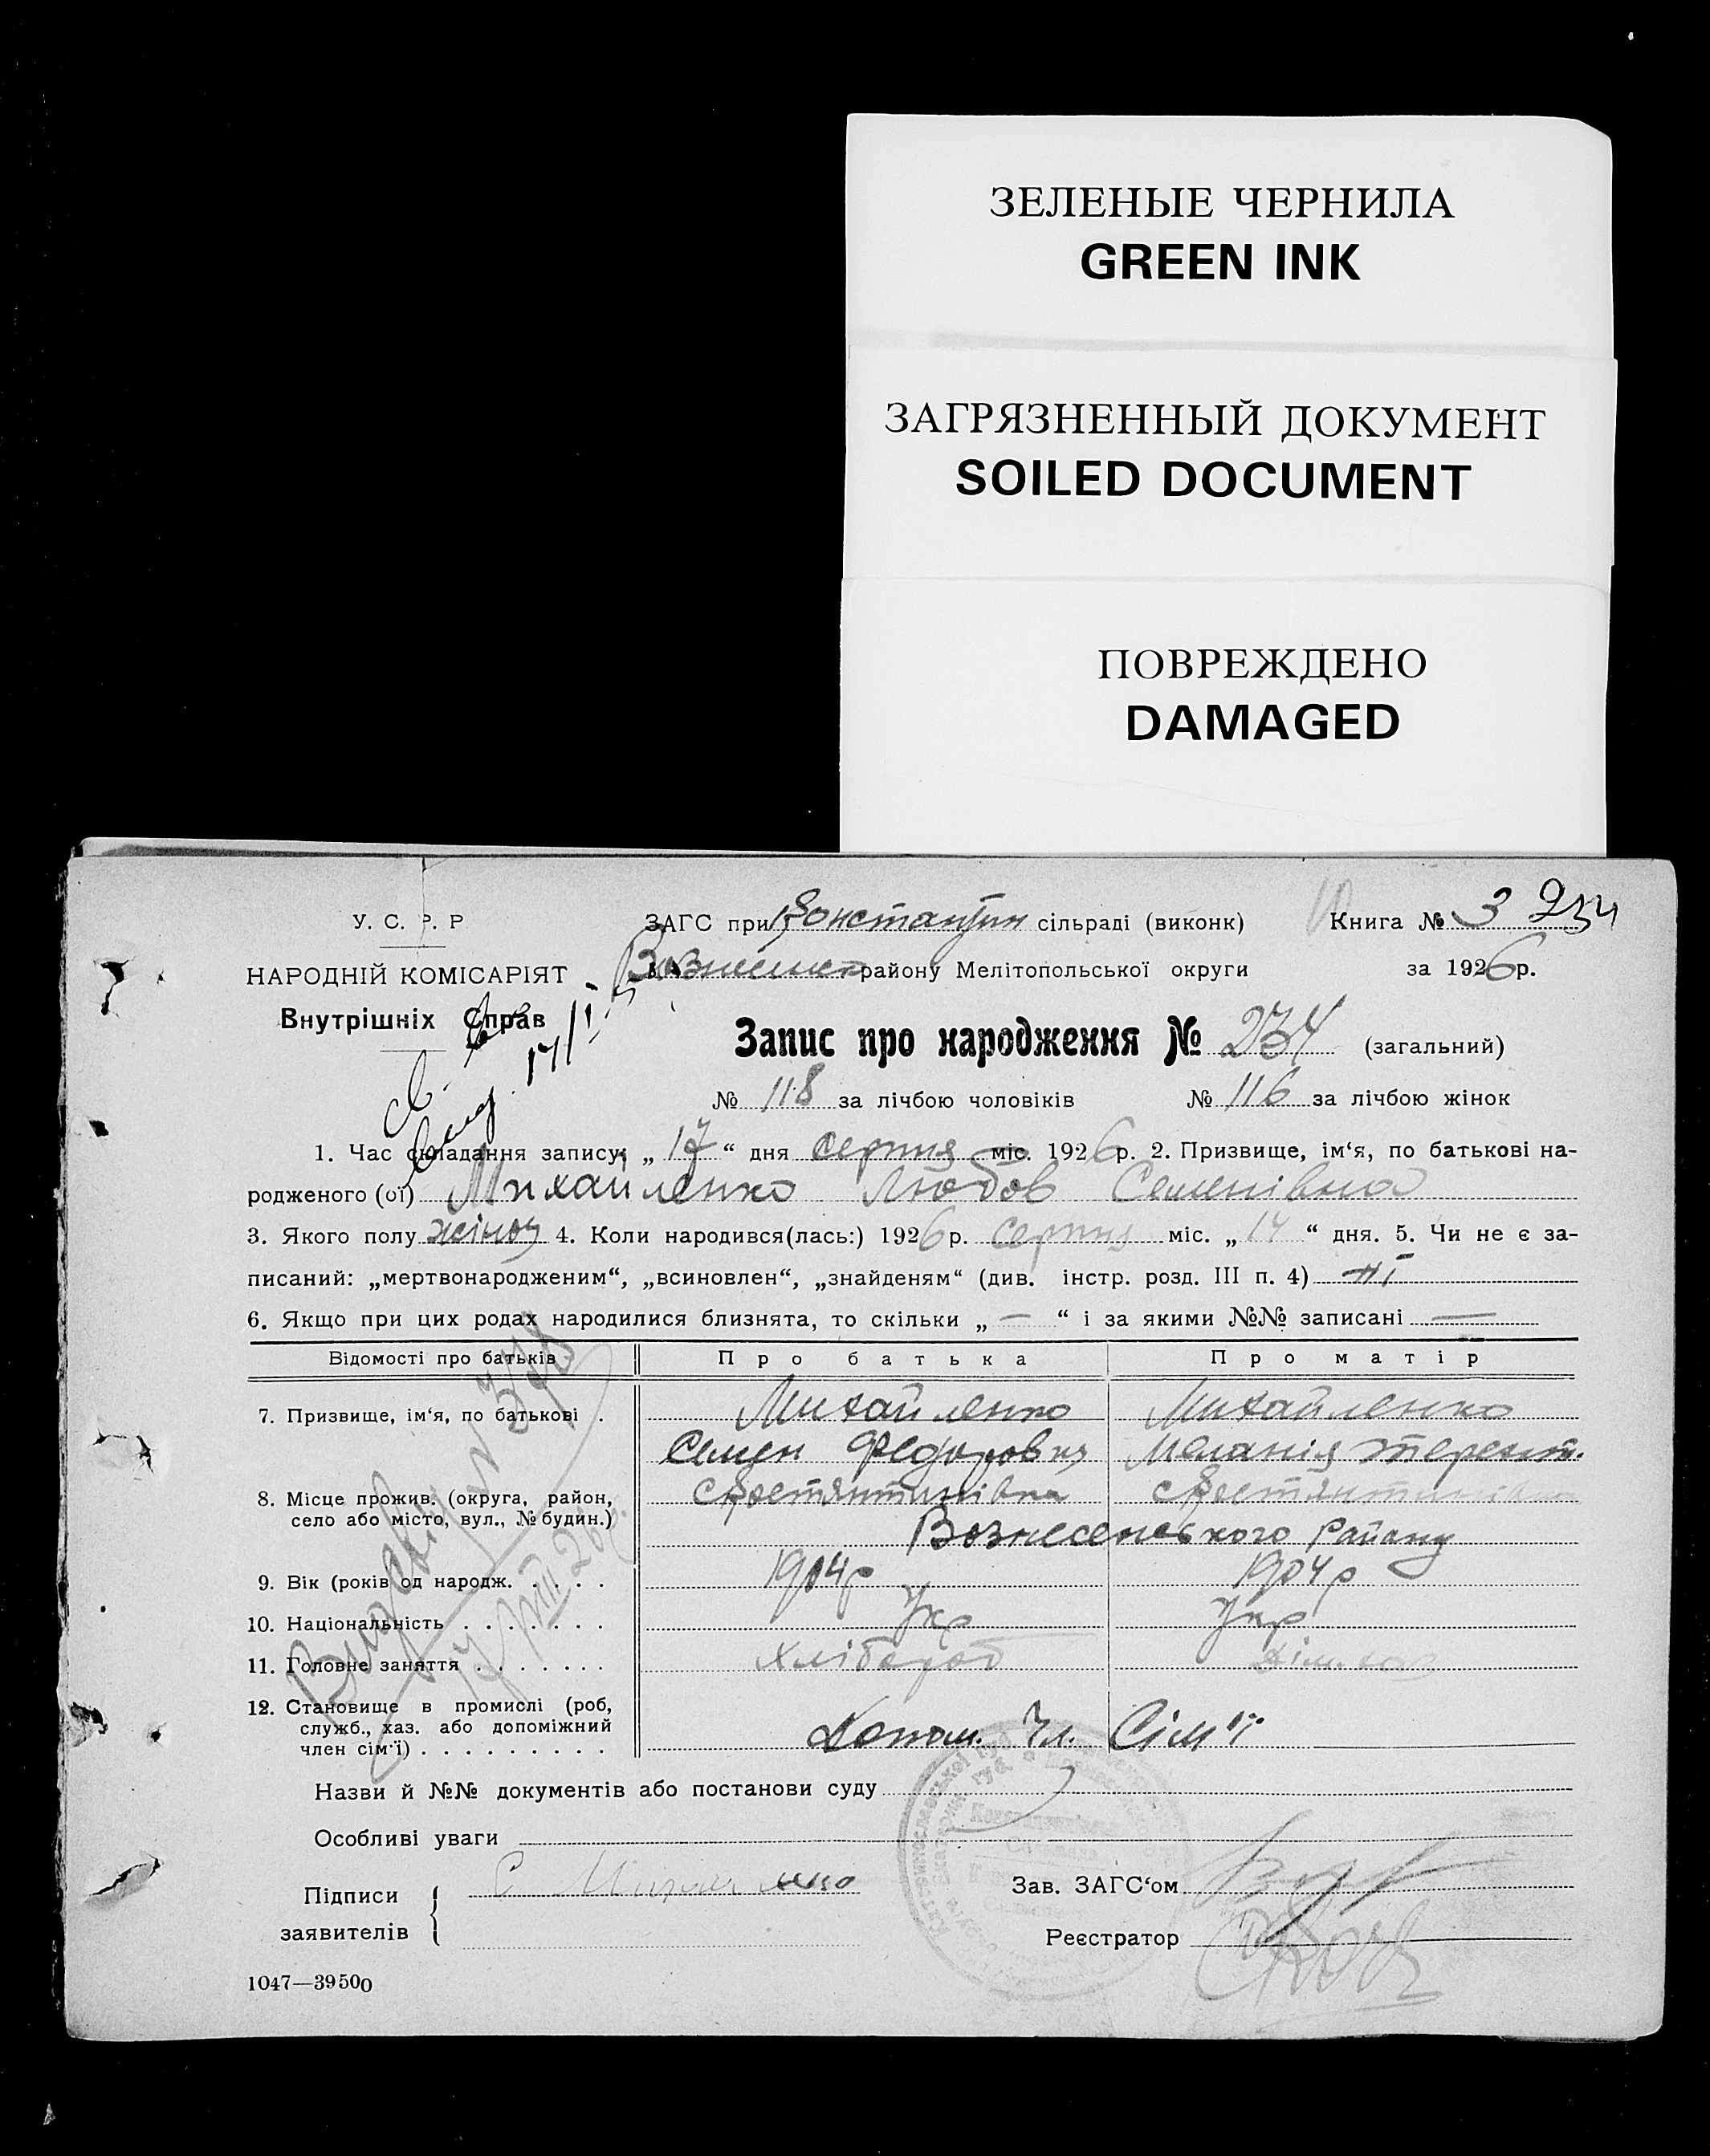 ЗЕЛЕНЫЕ ЧЕРНИЛА
GREEN INK
ЗАГРЯЗНЕННЫЙ ДОКУМЕНТ
SOILED DOCUMENT
ПОВРЕЖДЕНО
DAMAGED
У. С. Р. Р
НАРОДНІЙ КОМІСАРІЯТ
Внутрішніх Справ
ЗАГС при Константин сільраді (виконк)
Книга № 3 234
району Мелітопольської округи
за 1926 р.
Запис про народження № 234 (загальний)
№ 118 за лічбою чоловіків № 116 за лічбою жінок
1. Час складання запису: „ 17 “ дня серпня міс. 1926 р. 2. Призвище, ім‘я, по батькові на-
родженого (ої) Михайленко Любов Семенівна
3. Якого полу жіноч 4. Коли народився(лась:) 1926 р. серпня міс. „ 14 “ дня. 5. Чи не є за-
писаний: „мертвонародженим“, „всиновлен“, „знайденям“ (див. інстр. розд. III п. 4) ні
6. Якщо при цих родах народилися близнята, то скільки „ — “ і за якими №№ записані —
Відомості про батьків Про батька Про матір
7. Призвище, ім‘я, по батькові . Михайленко Михайленко
Семен Федорович Меланія Терент.
8. Місце прожив. (округа, район,
село або місто, вул., № будин.)
Вознесенського Району
9. Вік (років од народж. . . . . 1904р 1904р
10. Національність . . . . . . . Укр Укр
11. Головне заняття . . . . . . . Хлібороб
12. Становище в промислі (роб,
служб., хаз. або допоміжний
член сім‘ї) . . . . . . . . . Допом. Чл. Сім'ї
Назви й №№ документів або постанови суду
Особливі уваги
Підписи
заявителів
С Михайленко
Зав. ЗАГС‘ом
Реєстратор
1047—39500